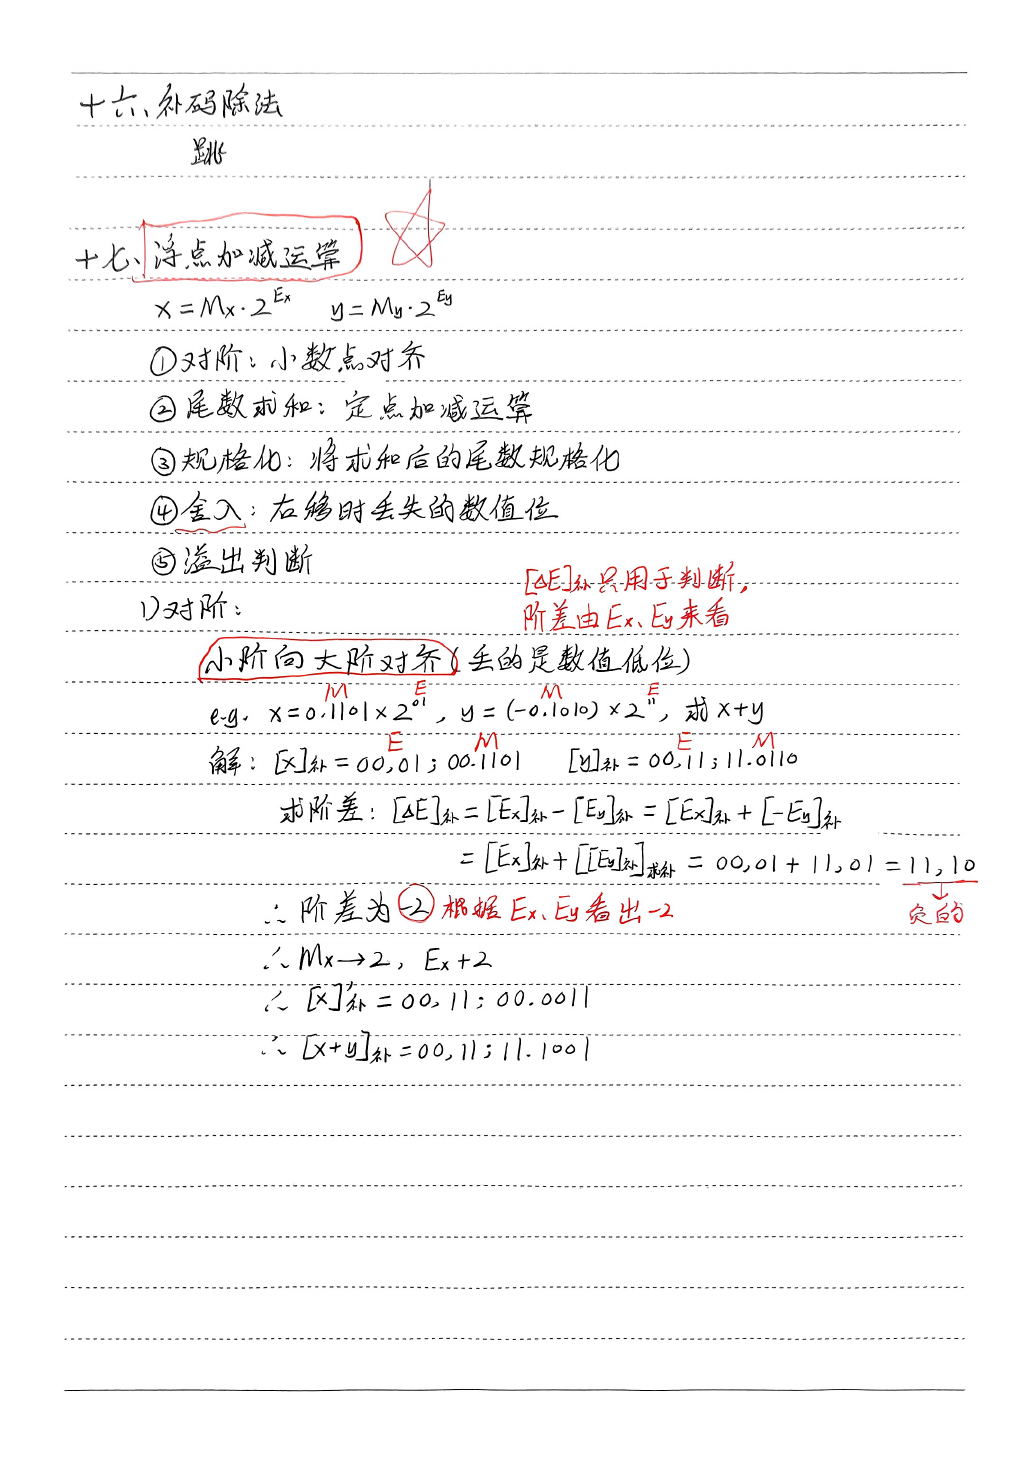 十六、补码除法
跳
十七、浮点加减运算
x = Mx · 2^Ex  y = My · 2^Ey
①对阶：小数点对齐
②尾数求和：定点加减运算
③规格化：将求和后的尾数规格化
④舍入：右移时丢失的数值位
⑤溢出判断
[ΔE]补只用于判断,
1)对阶：
阶差由Ex、Ey来看
小阶向大阶对齐(丢的是数值低位)
M E M E
e.g. x = 0.1101 × 2^01 , y = (-0.1010) × 2^11 , 求 x+y
E M E M
解：[x]补 = 00,01 ; 00.1101  [y]补 = 00,11 ; 11.0110
求阶差：[ΔE]补 = [Ex]补 - [Ey]补 = [Ex]补 + [-Ey]补
= [Ex]补 + [[Ey]补]求补 = 00,01 + 11,01 = 11,10
∴ 阶差为 -2 根据Ex、Ey看出-2
↓
负的
∴ Mx → 2, Ex + 2
∴ [x]'补 = 00,11 ; 00.0011
∴ [x+y]补 = 00,11 ; 11.1001